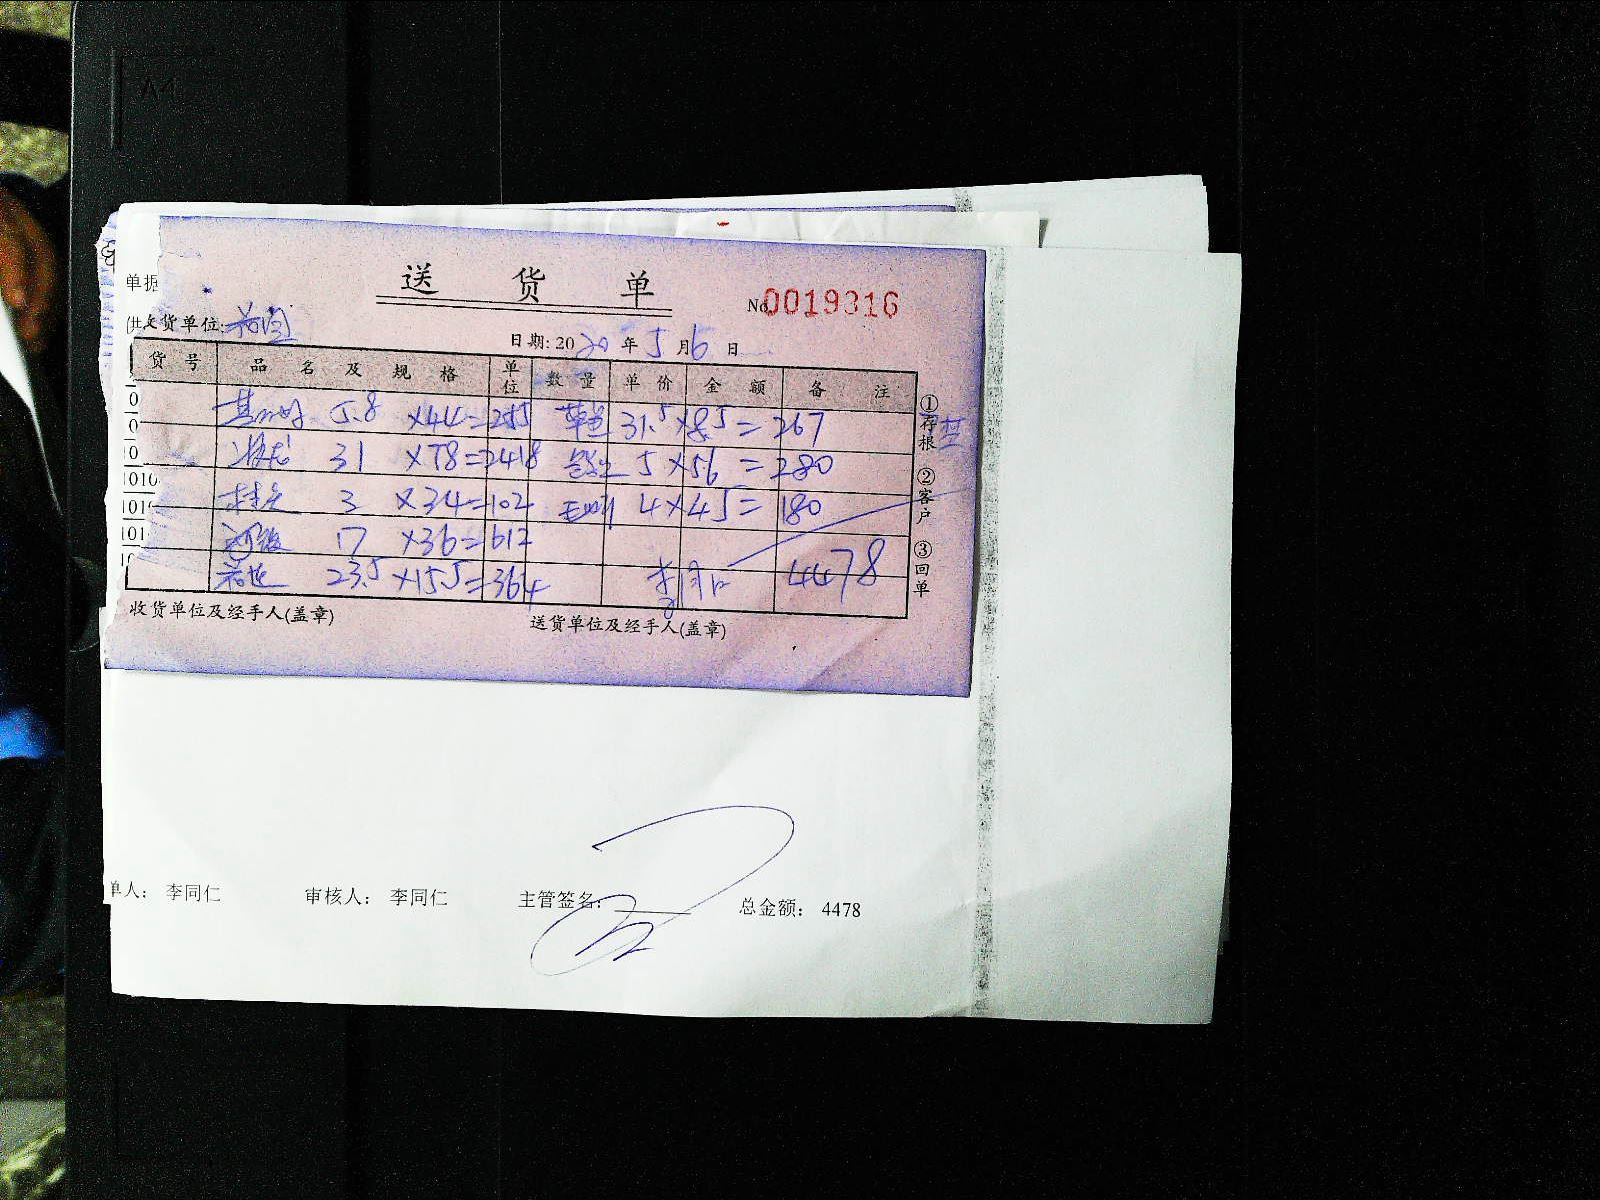 送 货 单
单据
No 0019316
收货单位:
日期: 2020 年 5 月 6 日
货 号 品 名 及 规 格 单位 数 量 单 价 金 额 备 注
5.8 ×44=255 草鱼 31.5×8.5=267
31 ×78=2418 5×56=280
3 ×34=102 4×45=180
17 ×36=612
23.5×15.5=364 4478
①存根 ②客户 ③回单
收货单位及经手人(盖章) 送货单位及经手人(盖章)
单人: 李同仁 审核人: 李同仁 主管签名: 总金额: 4478